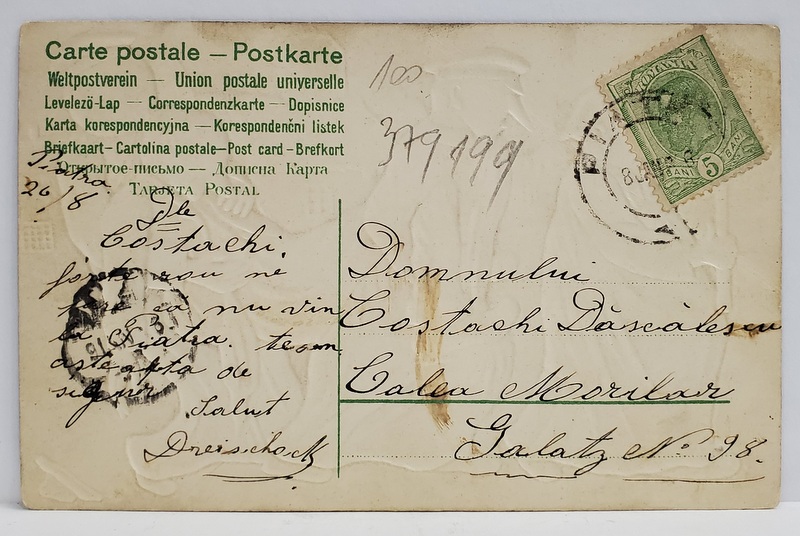 Carte postale — Postkarte
Weltpostverein — Union postale universelle
Levelező-Lap — Correspondenzkarte — Dopisnice
Karta korespondencyjna — Korespondenčni listek
Briefkaart - Cartolina postale - Post card - Brefkort
Открытое письмо — Дописна Карта
Tarjeta Postal
100
379 199
ROMANIA
BANI 5 BANI
PIATRA
Piatra
26/8
Dle
Costachi.
foarte rau ne
ca nu vin
la Piatra. te om
astepta de
sigur.
Salut
Domnului
Costachi Dăscălescu
Calea Morilor
Galatz No 98.